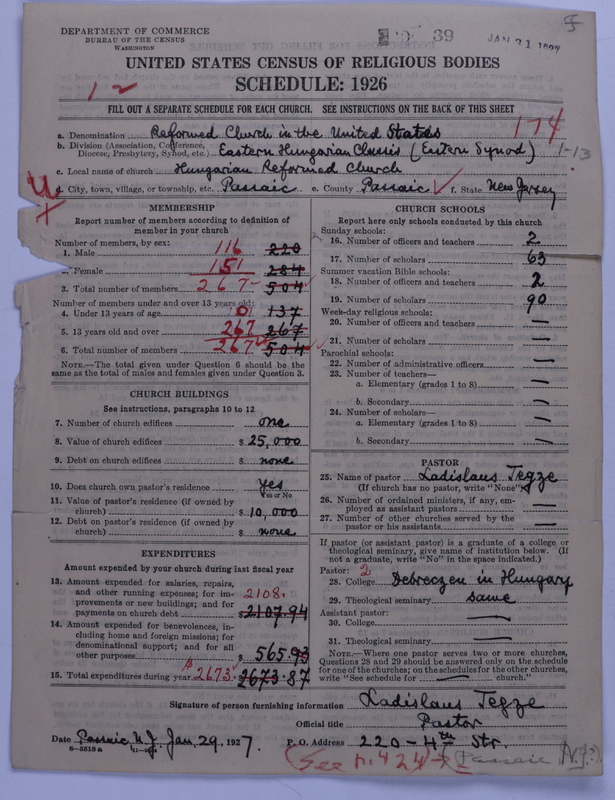 DEPARTMENT OF COMMERCE
BUREAU OF THE CENSUS
WASHINGTON
39
UNITED STATES CENSUS OF RELIGIOUS BODIES
SCHEDULE: 1926
1-2
FILL OUT A SEPARATE SCHEDULE FOR EACH CHURCH. SEE INSTRUCTIONS ON THE BACK OF THIS SHEET
a. Denomination Reformed Church in the United States 174
b. Division (Association, Conference, Diocese, Presbytery, Synod, etc.) Eastern Hungarian Classis (Eastern Synod) 1-13
c. Local name of church Hungarian Reformed Church
d. City, town, village, or township, etc. Passaic e. County Passaic f. State New Jersey
MEMBERSHIP
Report number of members according to definition of member in your church
Number of members, by sex:
1. Male 116 220
2. Female 151 284
3. Total number of members 267 504
Number of members under and over 13 years old:
4. Under 13 years of age 0 137
5. 13 years old and over 267 267
6. Total number of members 267 504
NOTE.—The total given under Question 6 should be the same as the total of males and females given under Question 3.
CHURCH BUILDINGS
See instructions, paragraphs 10 to 12
7. Number of church edifices one
8. Value of church edifices $ 25,000
9. Debt on church edifices $ none
10. Does church own pastor's residence yes
Yes or No
11. Value of pastor's residence (if owned by church) $ 10,000
12. Debt on pastor's residence (if owned by church) $ none
EXPENDITURES
Amount expended by your church during last fiscal year
13. Amount expended for salaries, repairs, and other running expenses; for improvements or new buildings; and for payments on church debt 2108. $ 2107.94
14. Amount expended for benevolences, including home and foreign missions; for denominational support; and for all other purposes $ 565.93
15. Total expenditures during year $ 2673. 2673.87
CHURCH SCHOOLS
Report here only schools conducted by this church
Sunday schools:
16. Number of officers and teachers 2
17. Number of scholars 63
Summer vacation Bible schools:
18. Number of officers and teachers 2
19. Number of scholars 90
Week-day religious schools:
20. Number of officers and teachers —
21. Number of scholars —
Parochial schools:
22. Number of administrative officers —
23. Number of teachers—
a. Elementary (grades 1 to 8) —
b. Secondary —
24. Number of scholars—
a. Elementary (grades 1 to 8) —
b. Secondary —
PASTOR
25. Name of pastor Ladislaus Tegze
(If church has no pastor, write "None")
26. Number of ordained ministers, if any, employed as assistant pastors —
27. Number of other churches served by the pastor or his assistants —
If pastor (or assistant pastor) is a graduate of a college or theological seminary, give name of institution below. (If not a graduate, write "No" in the space indicated.)
Pastor: 2
28. College Debreczen in Hungary
29. Theological seminary same
Assistant pastor:
30. College —
31. Theological seminary —
NOTE.—Where one pastor serves two or more churches, Questions 28 and 29 should be answered only on the schedule for one of the churches; on the schedules for the other churches, write "See schedule for — church."
Signature of person furnishing information Ladislaus Tegze
Official title Pastor
Date Passaic N.J. Jan. 29, 1927. P. O. Address 220 - 4th Str.
8—5518 a
Passaic, N.J.